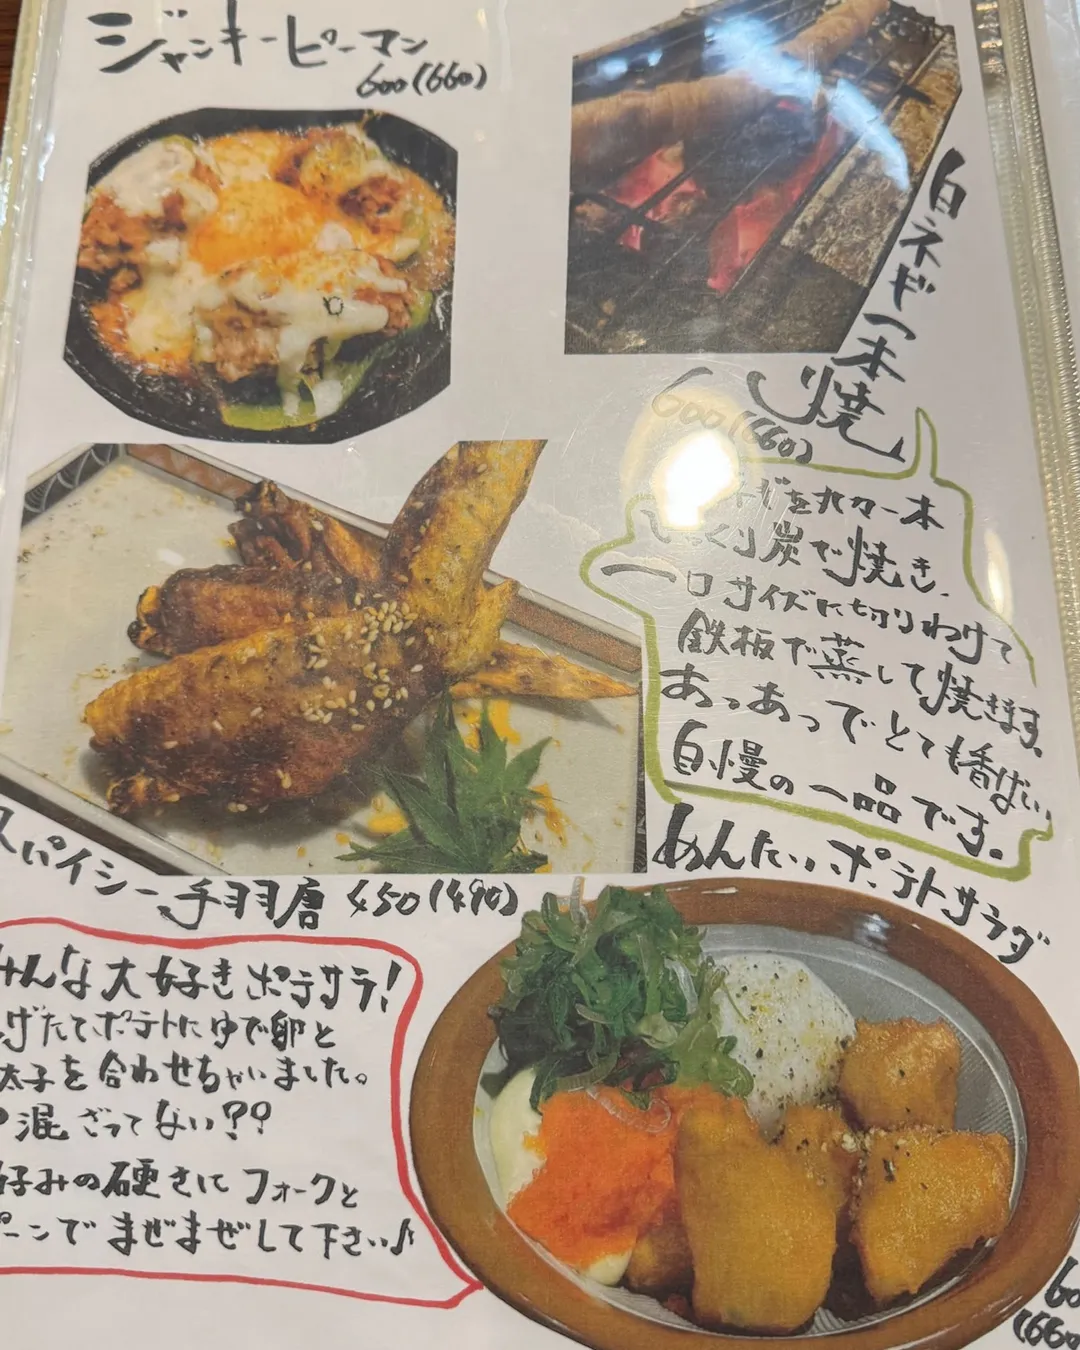 ジャンキーピーマン
600(660)
白ネギ一本焼
600(660)
ネギを丸々一本
じっくり炭で焼き、
一口サイズに切りわけて
鉄板で蒸して焼きます。
あっあっでとても香ばい、
自慢の一品です。
スパイシー手羽唐 450(490)
めんたいポテトサラダ
みんな大好きポテサラ!
げたてポテトにゆで卵と
太子を合わせちゃいました。
混ざってない??
好みの硬さにフォークと
プーンでまぜまぜして下さい♪
60
(660